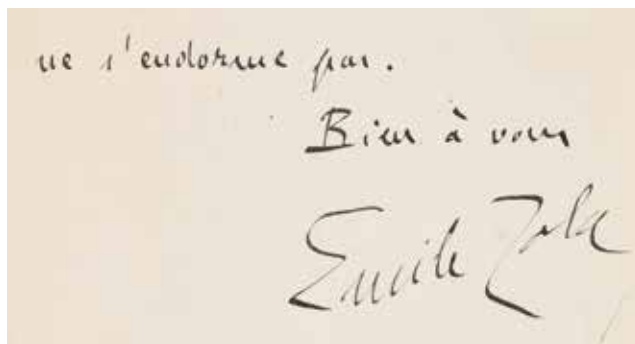 ne s'endorme pas.
Bien à vous
Emile Zola